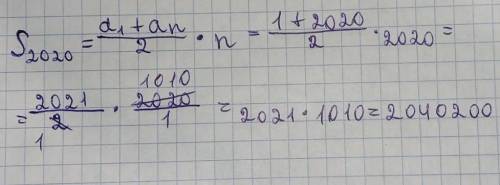 S₂₀₂₀ = (a₁ + aₙ)/2 · n = (1 + 2020)/2 · 2020 =
= 2021/2̶ 1 · 1010 2̶0̶2̶0̶/1 = 2021 · 1010 = 2040200